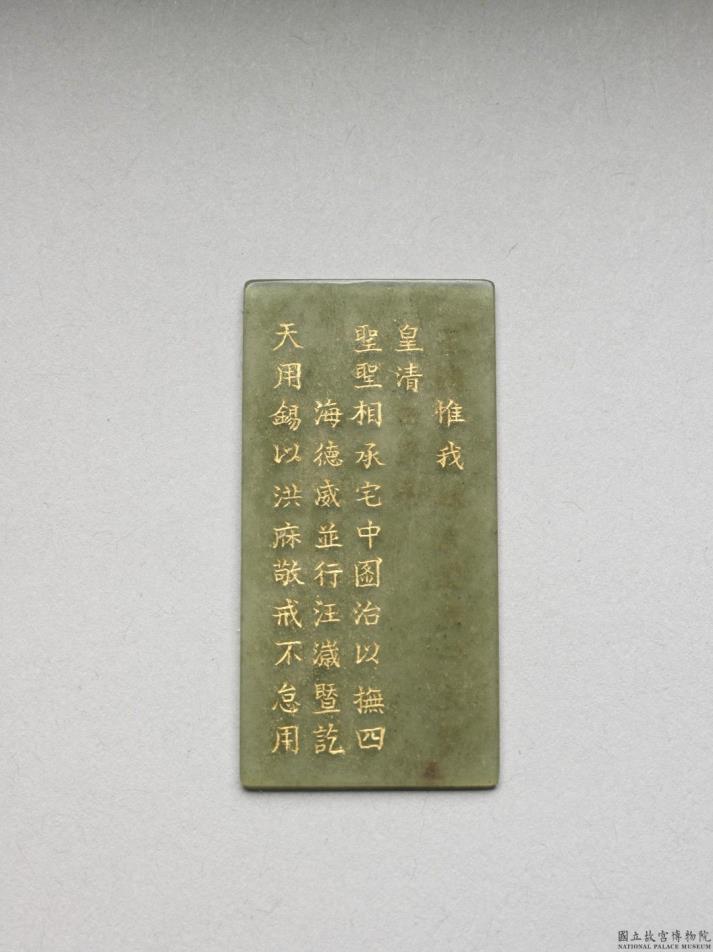 惟我
皇清
聖聖相承宅中圖治以撫四
海德威並行汪濊暨訖
天用錫以洪庥敬戒不怠用
國立故宮博物院
NATIONAL PALACE MUSEUM